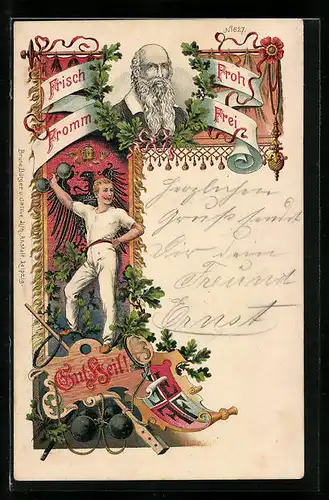 No 627.
Frisch
Fromm
Froh
Frei
Herzlichen
Gruß sendet
Dir dein
Freund
Ernst
Gut Heil!
Bruno Bürger & Ottillie, Lith. Anstalt, Leipzig.